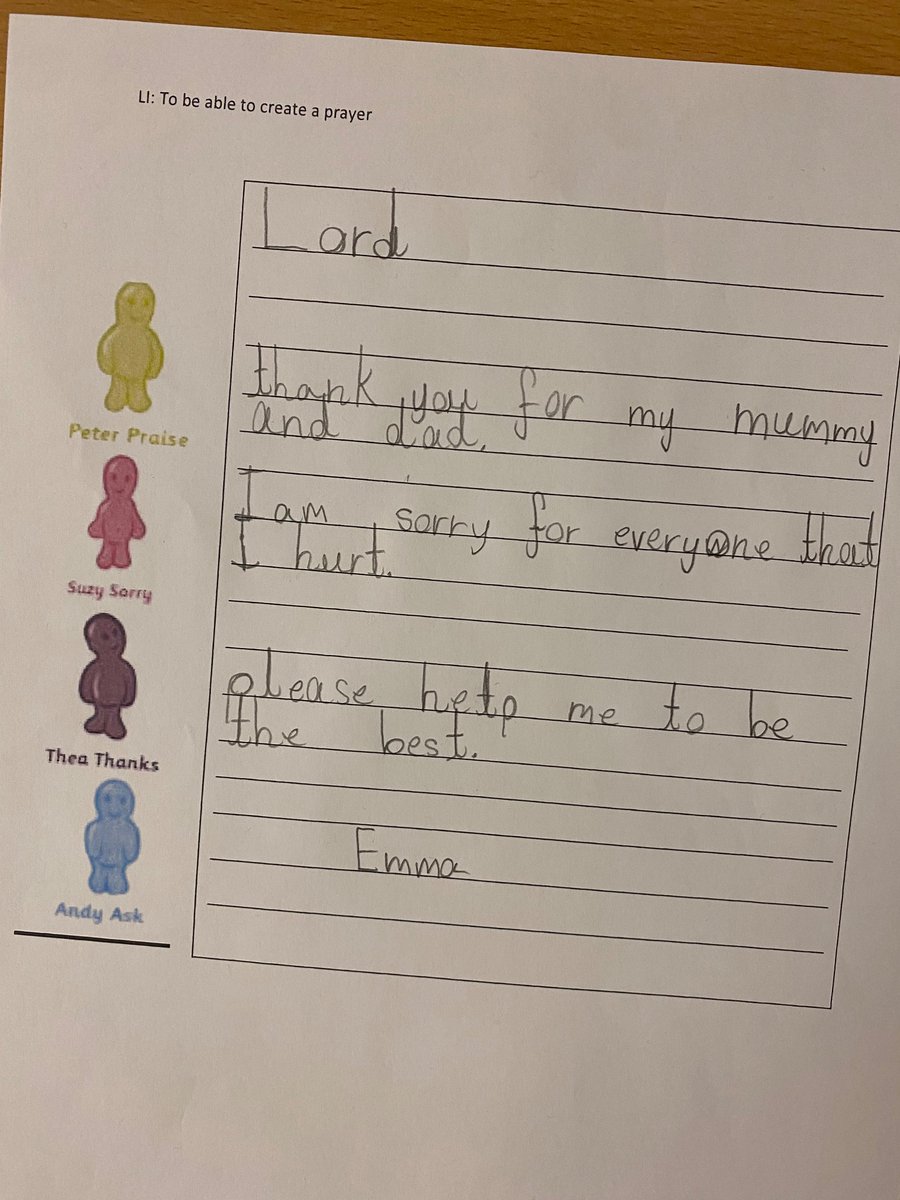 LI: To be able to create a prayer
Lord
thank you for my mummy
and dad.
I am sorry for everyone that
I hurt.
please help me to be
the best.
Emma
Peter Praise
Suzy Sorry
Thea Thanks
Andy Ask